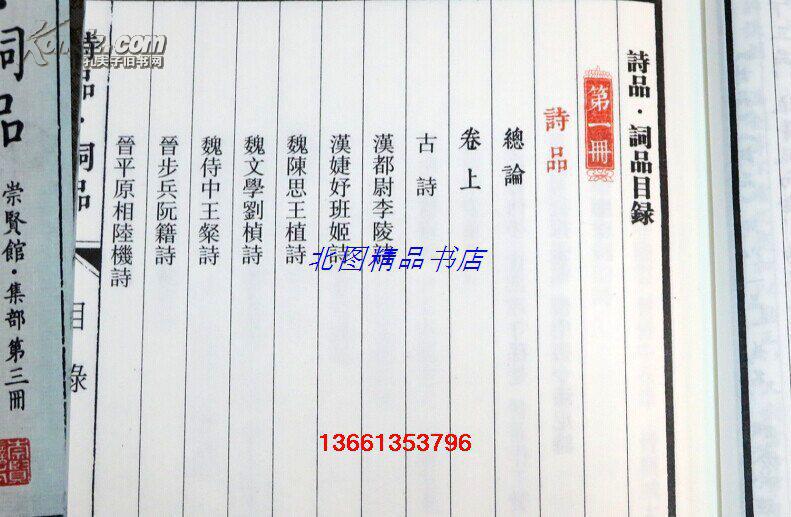 詩品·詞品目録
第一冊
詩品
總論
卷上
古詩
漢都尉李陵詩
漢婕妤班姬詩
魏陳思王植詩
魏文學劉楨詩
魏侍中王粲詩
晉步兵阮籍詩
晉平原相陸機詩
詩品·詞品
目録
詞品
崇賢館·集部第三冊
孔夫子旧书网
北图精品书店
13661353796